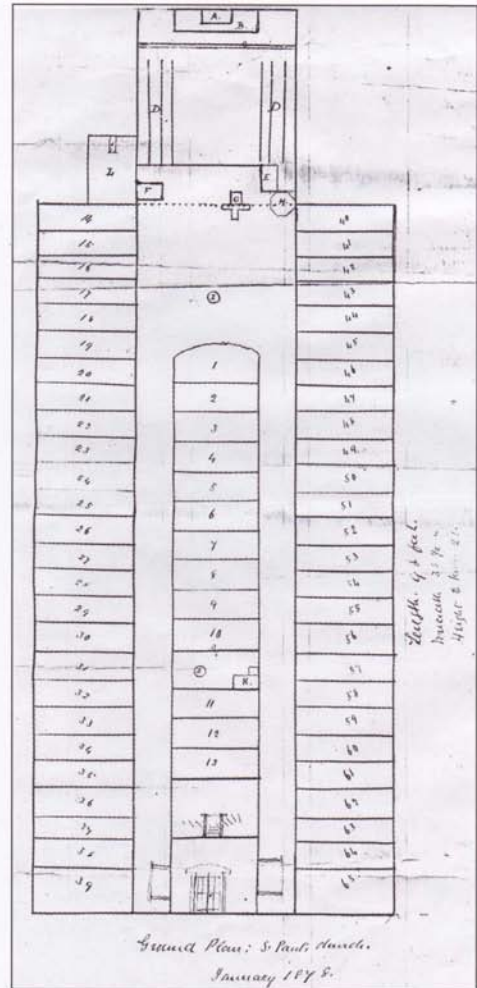 A.
B.
D
D
L
E
F
G
H
14
15
16
17
18
19
20
21
22
23
24
25
26
27
28
29
30
31
32
33
34
35
36
37
38
39
I
1
2
3
4
5
6
7
8
9
10
I
K
11
12
13
40
41
42
43
44
45
46
47
48
49
50
51
52
53
54
55
56
57
58
59
60
61
62
63
64
65
Length 9 feet.
Height
Ground Plan: S. Pauls church.
January 1878.